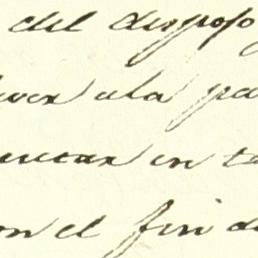 del despojo
ver ala pa
cutar en ta
on el fin d